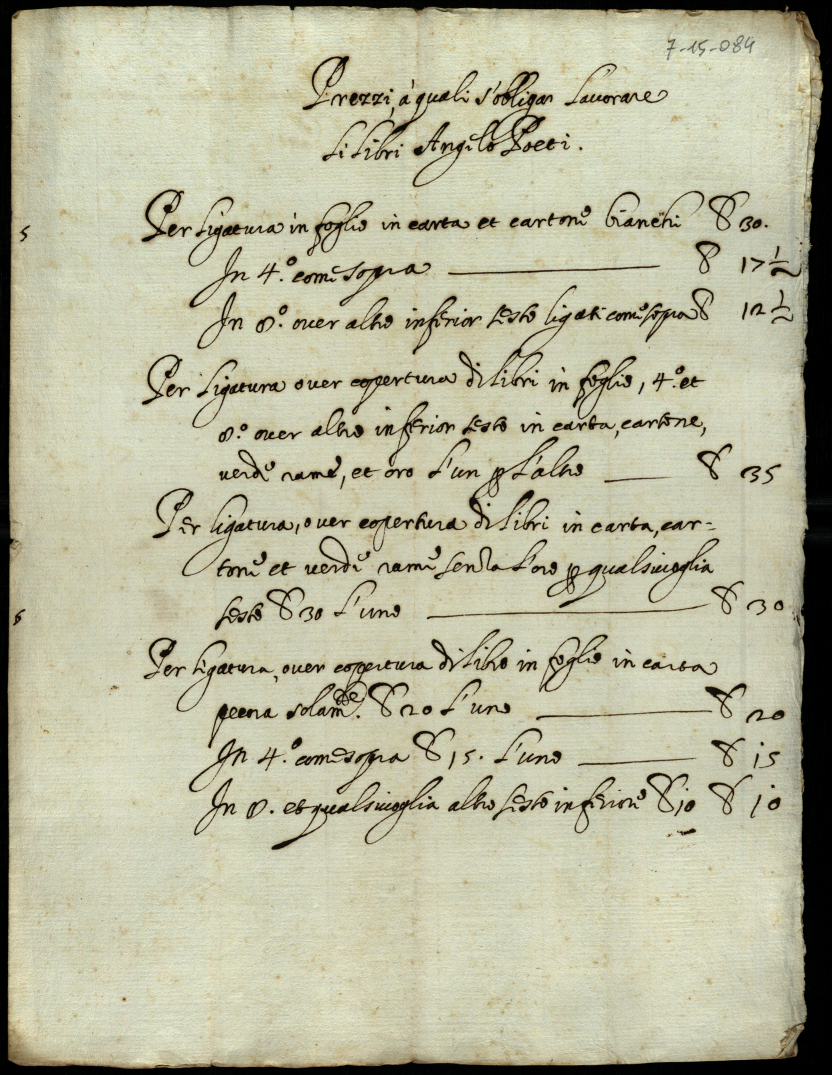 7-15-084
Prezzi, à quali s'obliga Lavorare
li libri Angelo Poeti.
Per ligatura in foglio in carta et cartone bianchi S 30.
In 4.º come sopra S 17 1/2
In 8.º over altro inferior sesto ligati come sopra S 12 1/2
Per ligatura over copertura di libri in foglio, 4.º et
8.º over altro inferior sesto in carta, cartone,
verde rame, et oro l'un p l'altro S 35
Per ligatura, over copertura di libri in carta, car=
tone et verde rame senza l'oro p qualsivoglia
sesto S 30 l'uno S 30
Per ligatura, over copertura di libro in foglio in carta
pecora solam.te S 20 l'uno S 20
In 4.º come sopra S 15. l'uno S 15
In 8. et qualsivoglia altro sesto inferiore S 10 S 10